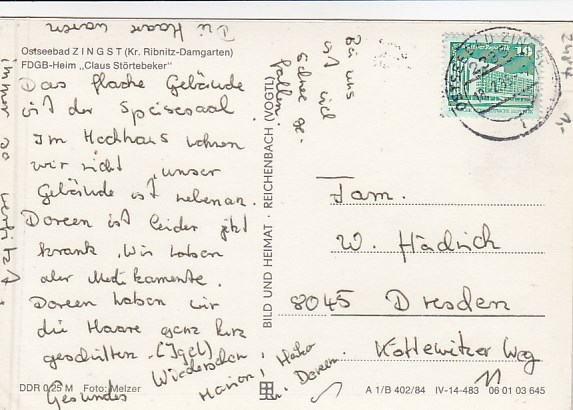 Ostseebad ZINGST (Kr. Ribnitz-Damgarten)
FDGB-Heim „Claus Störtebeker"
Das flache Gebäude
ist der Speisesaal.
Im Hochhaus wohnen
wir nicht, unser
Gebäude ist nebenan.
Doreen ist leider jetzt
krank. Wir haben
aber Medikamente.
Doreen haben wir
die Haare ganz kurz
geschnitten. (Igel)
Die Haare waren
immer so verfitzt.
Bei uns
ist viel
Schnee ge-
fallen.
Gesundes Wiedersehen
Marion, Heiko
u. Doreen.
BILD UND HEIMAT · REICHENBACH (VOGTL)
10
Fam.
W. Hädrich
8045 Dresden
Kottewitzer Weg
11
DDR 0,25 M Foto: Melzer
A 1/B 402/84 IV-14-483 06 01 03 645
1,-